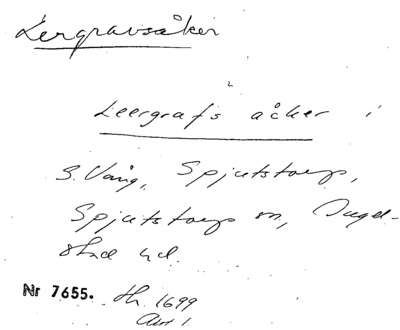 Lergravsåker
Leergrafs åcker i
3. Vång, Spjutstorp,
Spjutstorp sn, Ingel-
stad hd.
Nr 7655. th. 1699